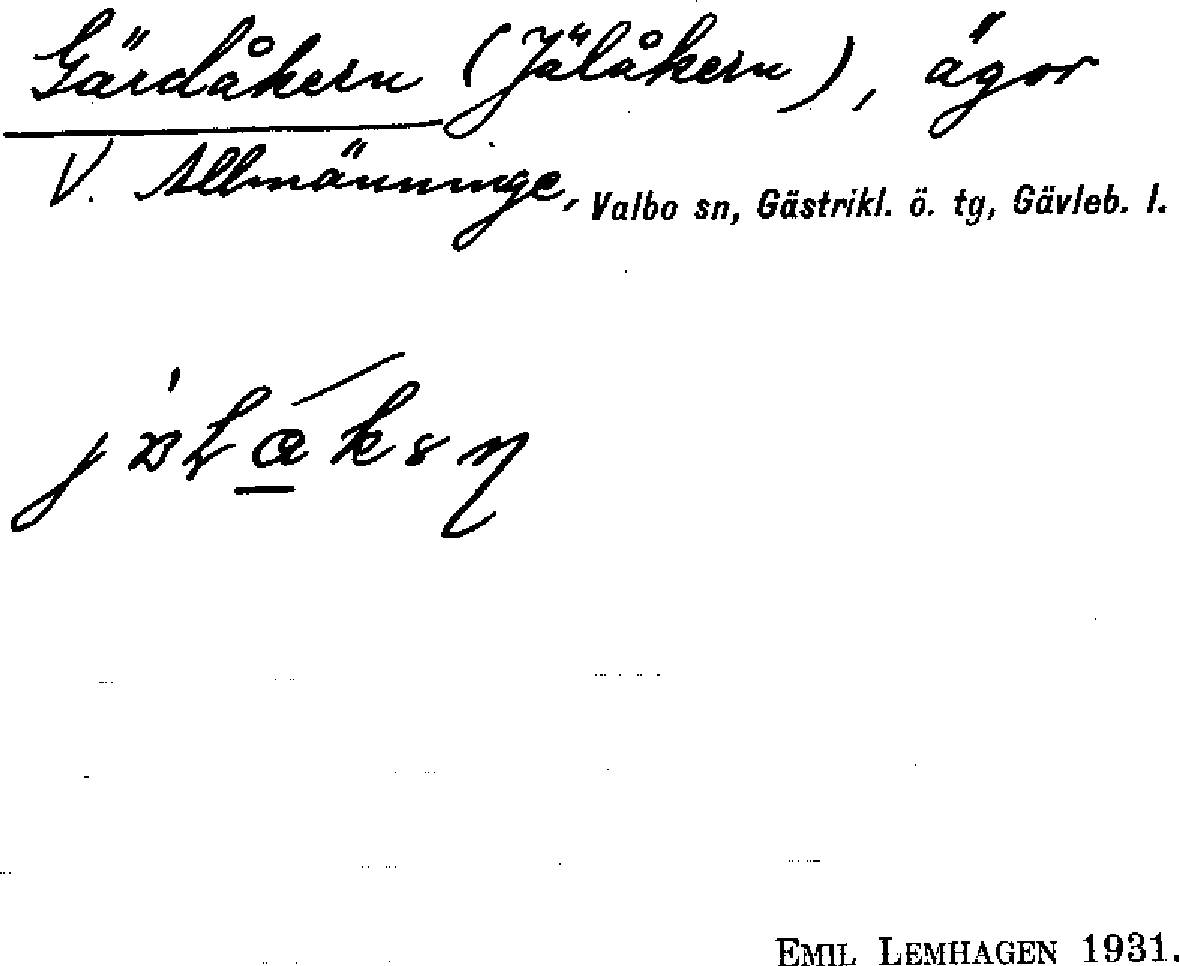 Gärdåkern (Jälåkern), ägor
V. Allmänninge, Valbo sn, Gästrikl. ö. tg, Gävleb. l.
EMIL LEMHAGEN 1931.